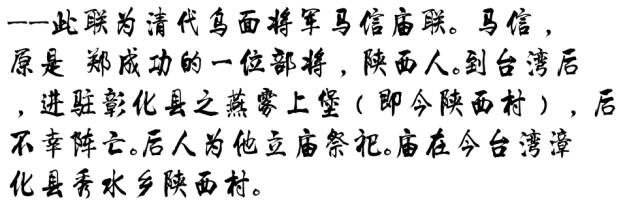 ——此联为清代乌面将军马信庙联。马信，
原是 郑成功的一位部将，陕西人。到台湾后
，进驻彰化县之燕雾上堡（即今陕西村），后
不幸阵亡。后人为他立庙祭祀。庙在今台湾漳
化县秀水乡陕西村。